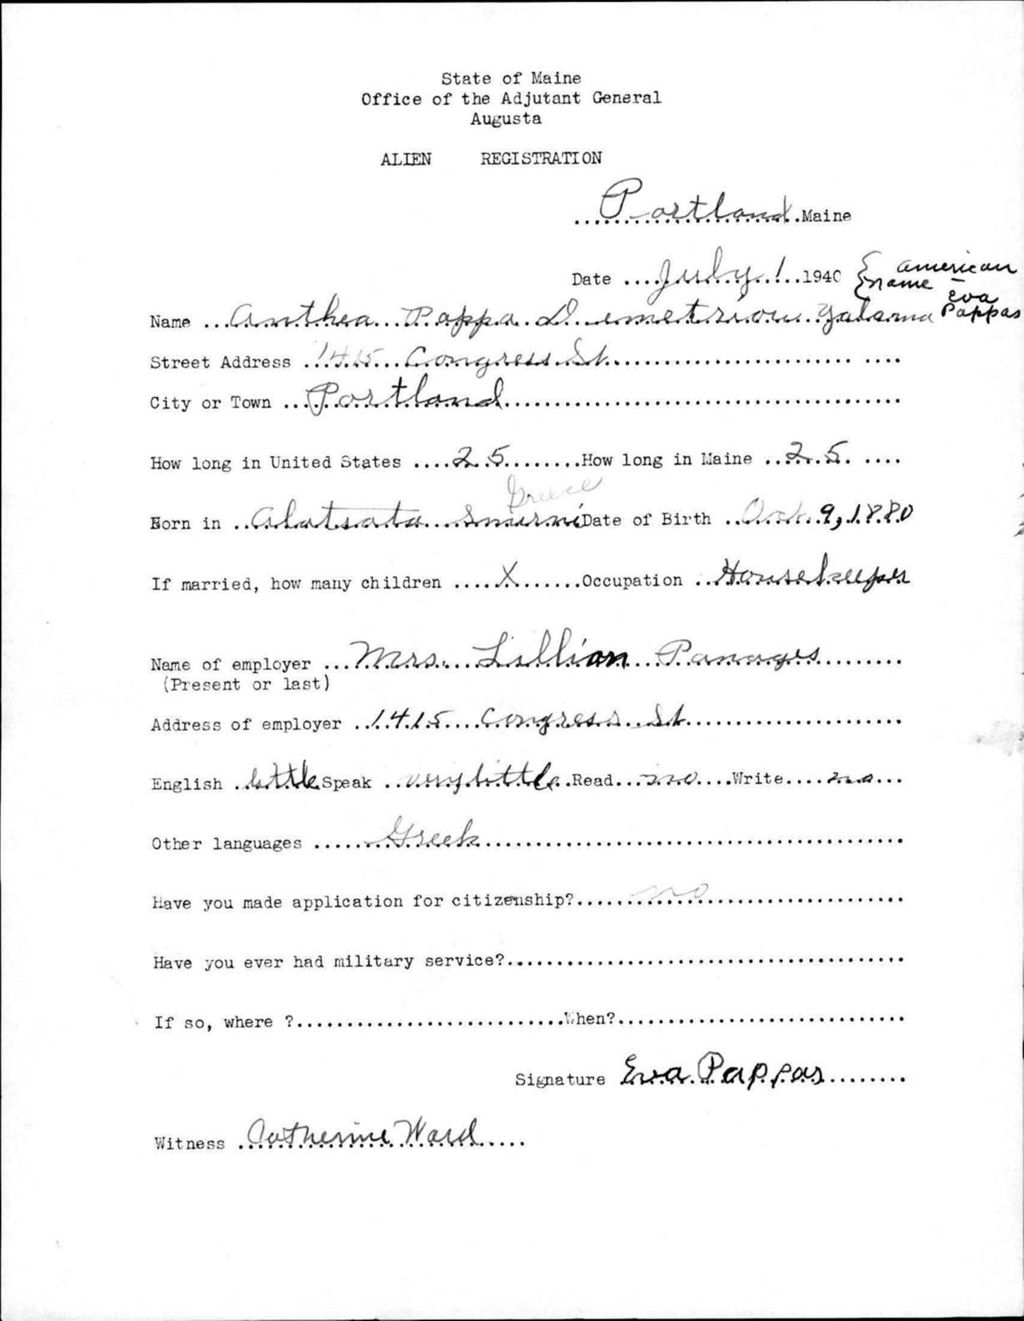 State of Maine
Office of the Adjutant General
Augusta
ALIEN REGISTRATION
Portland Maine
Date July 1 1940 { American
name - Eva
Pappas
Name Anthea Pappa Demetriou
Street Address 1415 Congress St.
City or Town Portland
How long in United States 25 How long in Maine 25
Greece
Born in Alatsata Smirni Date of Birth Oct. 9, 1880
If married, how many children X Occupation Housekeeper
Name of employer Mrs. Lillian Panages
(Present or last)
Address of employer 1415 Congress St
English little Speak very little Read no Write no
Other languages Greek
Have you made application for citizenship? no
Have you ever had military service?
If so, where ? When?
Signature Eva Pappas
Witness Catherine Ward